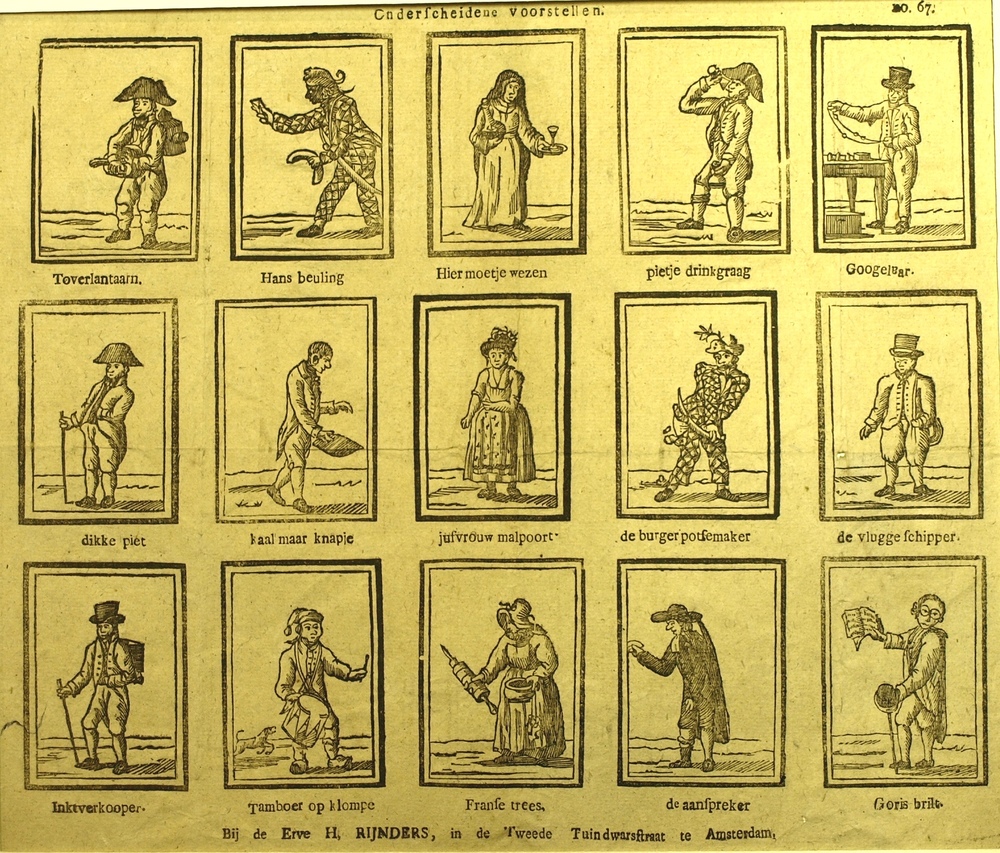 Onderſcheidene voorstellen.
no. 67.
Toverlantaarn.
Hans beuling
Hier moetje wezen
pietje drinkgraag
Googelaar.
dikke piet
kaal maar knapje
jufvrouw malpoort
de burger potſemaker
de vlugge ſchipper.
Inktverkooper.
Tamboer op klompe
Franſe trees,
de aanſpreker
Goris brilt.
Bij de Erve H. RIJNDERS, in de Tweede Tuindwarsſtraat te Amsterdam,